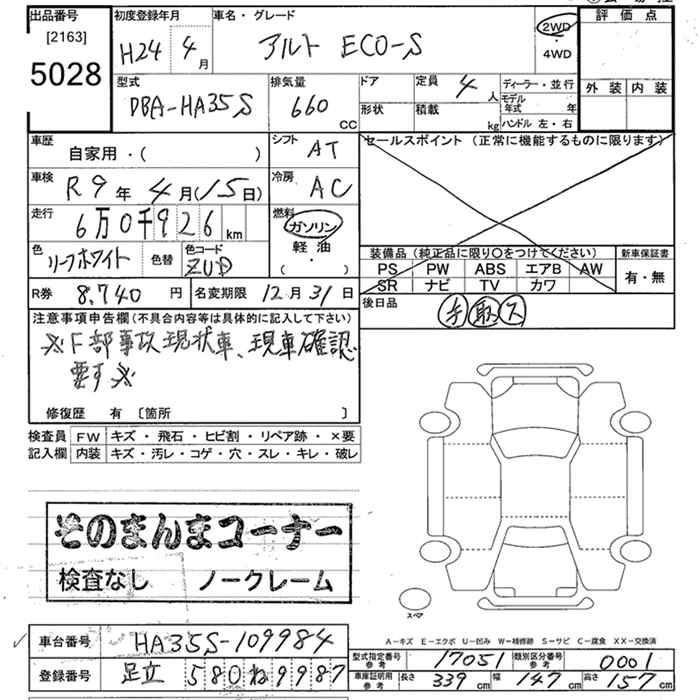 出品番号
[2163]
5028
初度登録年月
H24 4月
車名・グレード
アルト ECO-S
2WD
・
4WD
評価点
外装 内装
型式
DBA-HA35S
排気量
660 CC
ドア
形状
定員 4人
積載 kg
ディーラー・並行
モデル年式 年
ハンドル 左・右
車歴
自家用・( )
シフト AT
車検
R9年4月(15日)
冷房 AC
走行
6万0千926km
燃料
ガソリン
・
軽油
・
( )
色
リーフホワイト
色替
色コード
ZUD
R券 8,740円
名変期限 12月31日
セールスポイント (正常に機能するものに限ります)
装備品 (純正品に限り○をつけてください)
PS PW ABS エアB AW
SR ナビ TV カワ
新車保証書
有・無
後日品
手 取 ス
注意事項申告欄 (不具合内容等は具体的に記入して下さい)
※F部事故現状車、現車確認
要す※
修復歴 有 〔箇所 〕
検査員 FW キズ・飛石・ヒビ割・リペア跡・×要
記入欄 内装 キズ・汚レ・コゲ・穴・スレ・キレ・破レ
そのまんまコーナー
検査なし ノークレーム
スペア
A-キズ E-エクボ U-凹み W-補修跡 S-サビ C-腐食 XX-交換済
車台番号 HA35S-109984
登録番号 足立 580 ね 9987
型式指定番号 参考 17051
類別区分番号 参考 0001
車庫証明用 参考 長さ 339cm 幅 147cm 高さ 157cm